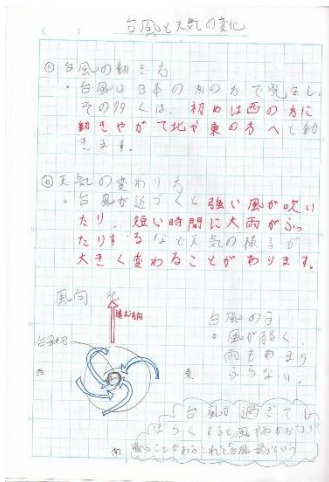 台風と天気の変化
台風の動き方
・台風は日本の南の方で発生し、
その多くは、初めは西の方に
動きやがて北や東の方へと動
きます。
天気の変わり方
・台風が近づくと強い風が吹い
たり、短い時間に大雨がふっ
たりするなど天気の様子が
大きく変わることがあります。
風向 北
進む方向
西
東
南
台風の
・風が弱く、
雨もあまり
ふらない。
台風が過ぎてし
ばらくすると風
ことがある これを台風